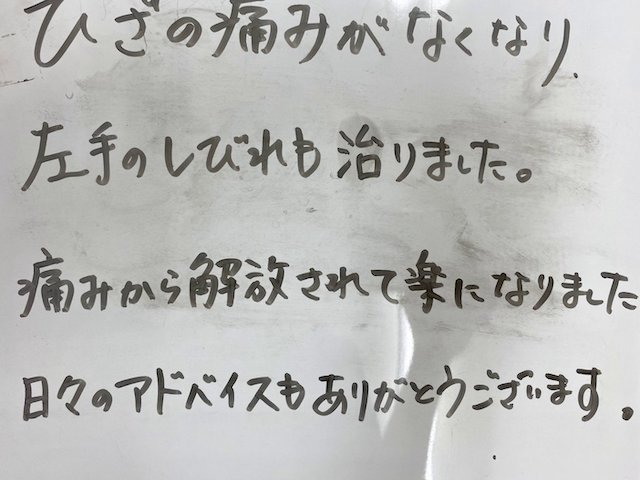 ひざの痛みがなくなり、
左手のしびれも治りました。
痛みから解放されて楽になりました
日々のアドバイスもありがとうございます。